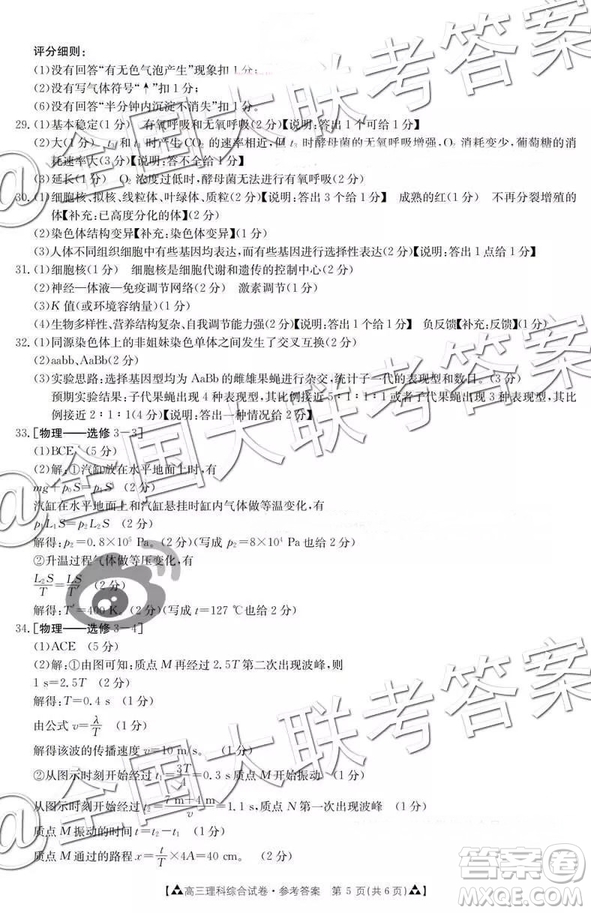 评分细则:
(1)没有回答“有无色气泡产生”现象扣1分;
(2)没有写气体符号“↑”扣1分;
(6)没有回答“半分钟内沉淀不消失”扣1分。
29.(1)基本稳定(1分) 有氧呼吸和无氧呼吸(2分)【说明:答出1个可给1分】
(2)大(1分) 时产生CO₂的速率相近,但 时酵母菌的无氧呼吸增强,O₂消耗变少,葡萄糖的消
耗速率大(3分)【说明:合理给分】
(3)延长(1分) O₂浓度过低时,酵母菌进行无氧呼吸(2分)
30.(1)细胞核、拟核、线粒体、叶绿体、质粒(2分)【说明:答出3个给1分】 成熟的红(1分) 不再分裂增殖的
体【补充:已高度分化的体】(2分)
(2)染色体结构变异(1分)【补充:染色体变异】(1分)
(3)人体不同组织细胞中而有些基因均表达,而有些基因选择性表达(2分)【说明:答出1点给1分】
31.(1)细胞核(1分) 细胞核是细胞代谢和遗传的控制中心(2分)
(2)神经—体液—免疫调节网络(2分) 激素调节(1分)
(3)K值(或环境容纳量)(1分)
(4)生物多样性、营养结构复杂、自我调节能力强(2分)【说明:答出1个给1分】 负反馈【补充:反馈】(1分)
32.(1)同源染色体上的非姐妹染色单体之间发生了交叉互换(2分)
(2)aabb、AaBb(2分)
(3)实验思路:选择基因型均为AaBb的雌雄果蝇进行杂交,统计子一代的表现型和数目。(2分)
预期实验结果:子代果蝇出现4种表现型,其比例接近5∶1∶1∶1或者子代果蝇出现3种表现型,其比
例接近2∶1∶1(4分)【说明:答出一种情况给2分】
33.[物理——选修3-3]
(1)BCE (5分)
(2)解:①汽缸放在水平地面上时,有
mg+p₀S=p₁S (2分)
汽缸在水平地面上和汽缸悬挂时缸内气体做等温变化,有
p₁L₁S=p₂L₂S (2分)
解得:p₂=0.8×10⁵ Pa。(2分)(写成p₂=8×10⁴ Pa也可给2分)
②升温过程气体做等压变化,有
L₂S/T=LS/T′ (2分)
解得:T′=400 K (2分)(写成t=127 ℃也可给2分)
34.[物理——选修3-4]
(1)ACE (5分)
(2)解:①由图可知:质点M再经过2.5T第二次出现波峰,则
1 s=2.5T (2分)
解得:T=0.4 s (1分)
由公式v=λ/T (1分)
解得该波的传播速度v=10 m/s。 (1分)
②从图示时刻开始经过t₁=3T/4=0.3 s质点M开始振动 (1分)
从图示时刻开始经过t₂=(7 m+4 m)/v=1.1 s,质点N第一次出现波峰 (1分)
质点M振动的时间t=t₂-t₁ (1分)
质点M通过的路程x=t/T×4A=80 cm (1分)
【▲高三理科综合试卷·参考答案 第5页(共6页)▲】
@全国大联考答案
@全国大联考答案
答案圈
MXQE.COM